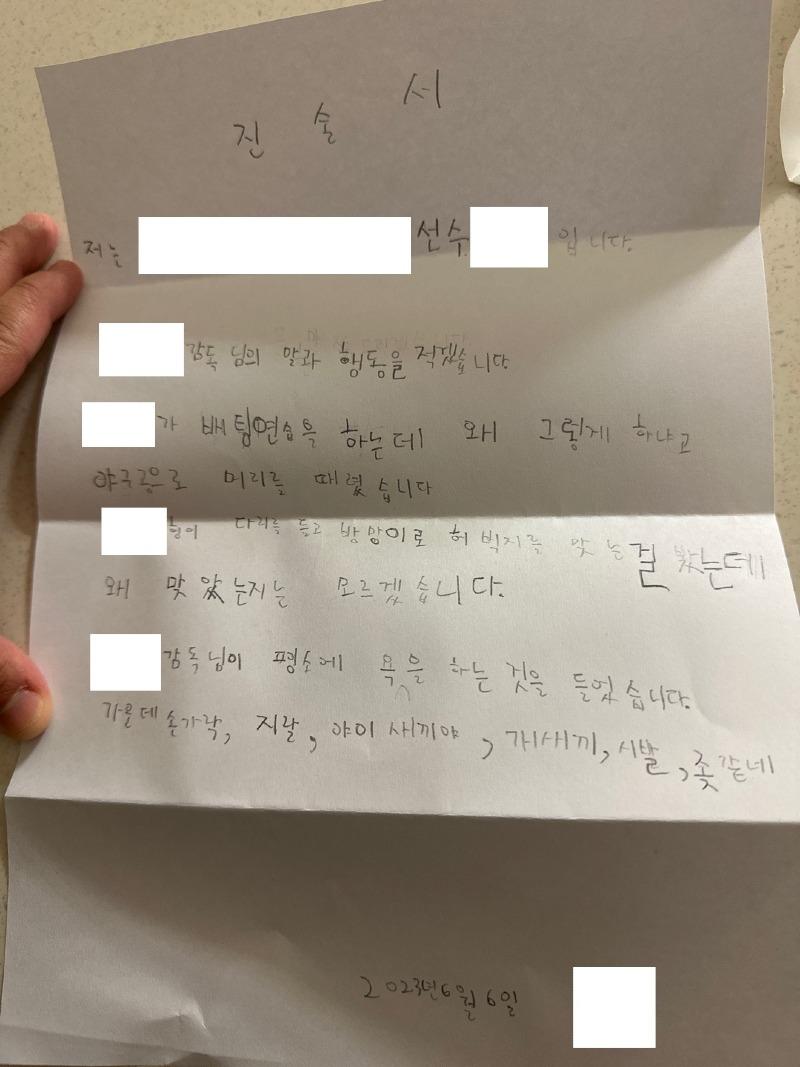 진 술 서
저는 선수 입니다.
감독님의 말과 행동을 적겠습니다
가 배팅연습을 하는데 왜 그렇게 하냐고
야구공으로 머리를 때렸습니다
형이 다리를 들고 방망이로 허벅지를 맞는걸 봤는데
왜 맞았는지는 모르겠습니다.
감독님이 평소에 욕을 하는 것을 들었습니다.
가운데손가락, 지랄, 야이새끼야, 개새끼, 시발, 좆같네
2023년6월6일